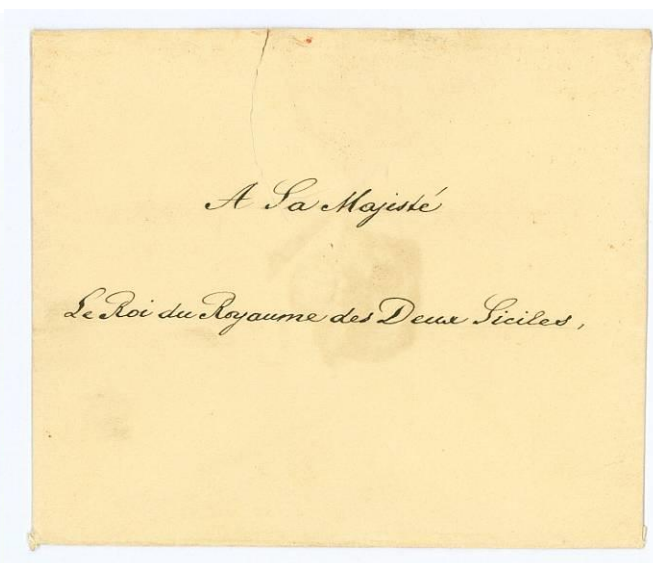 A Sa Majisté
Le Roi du Royaume des Deux Siciles,